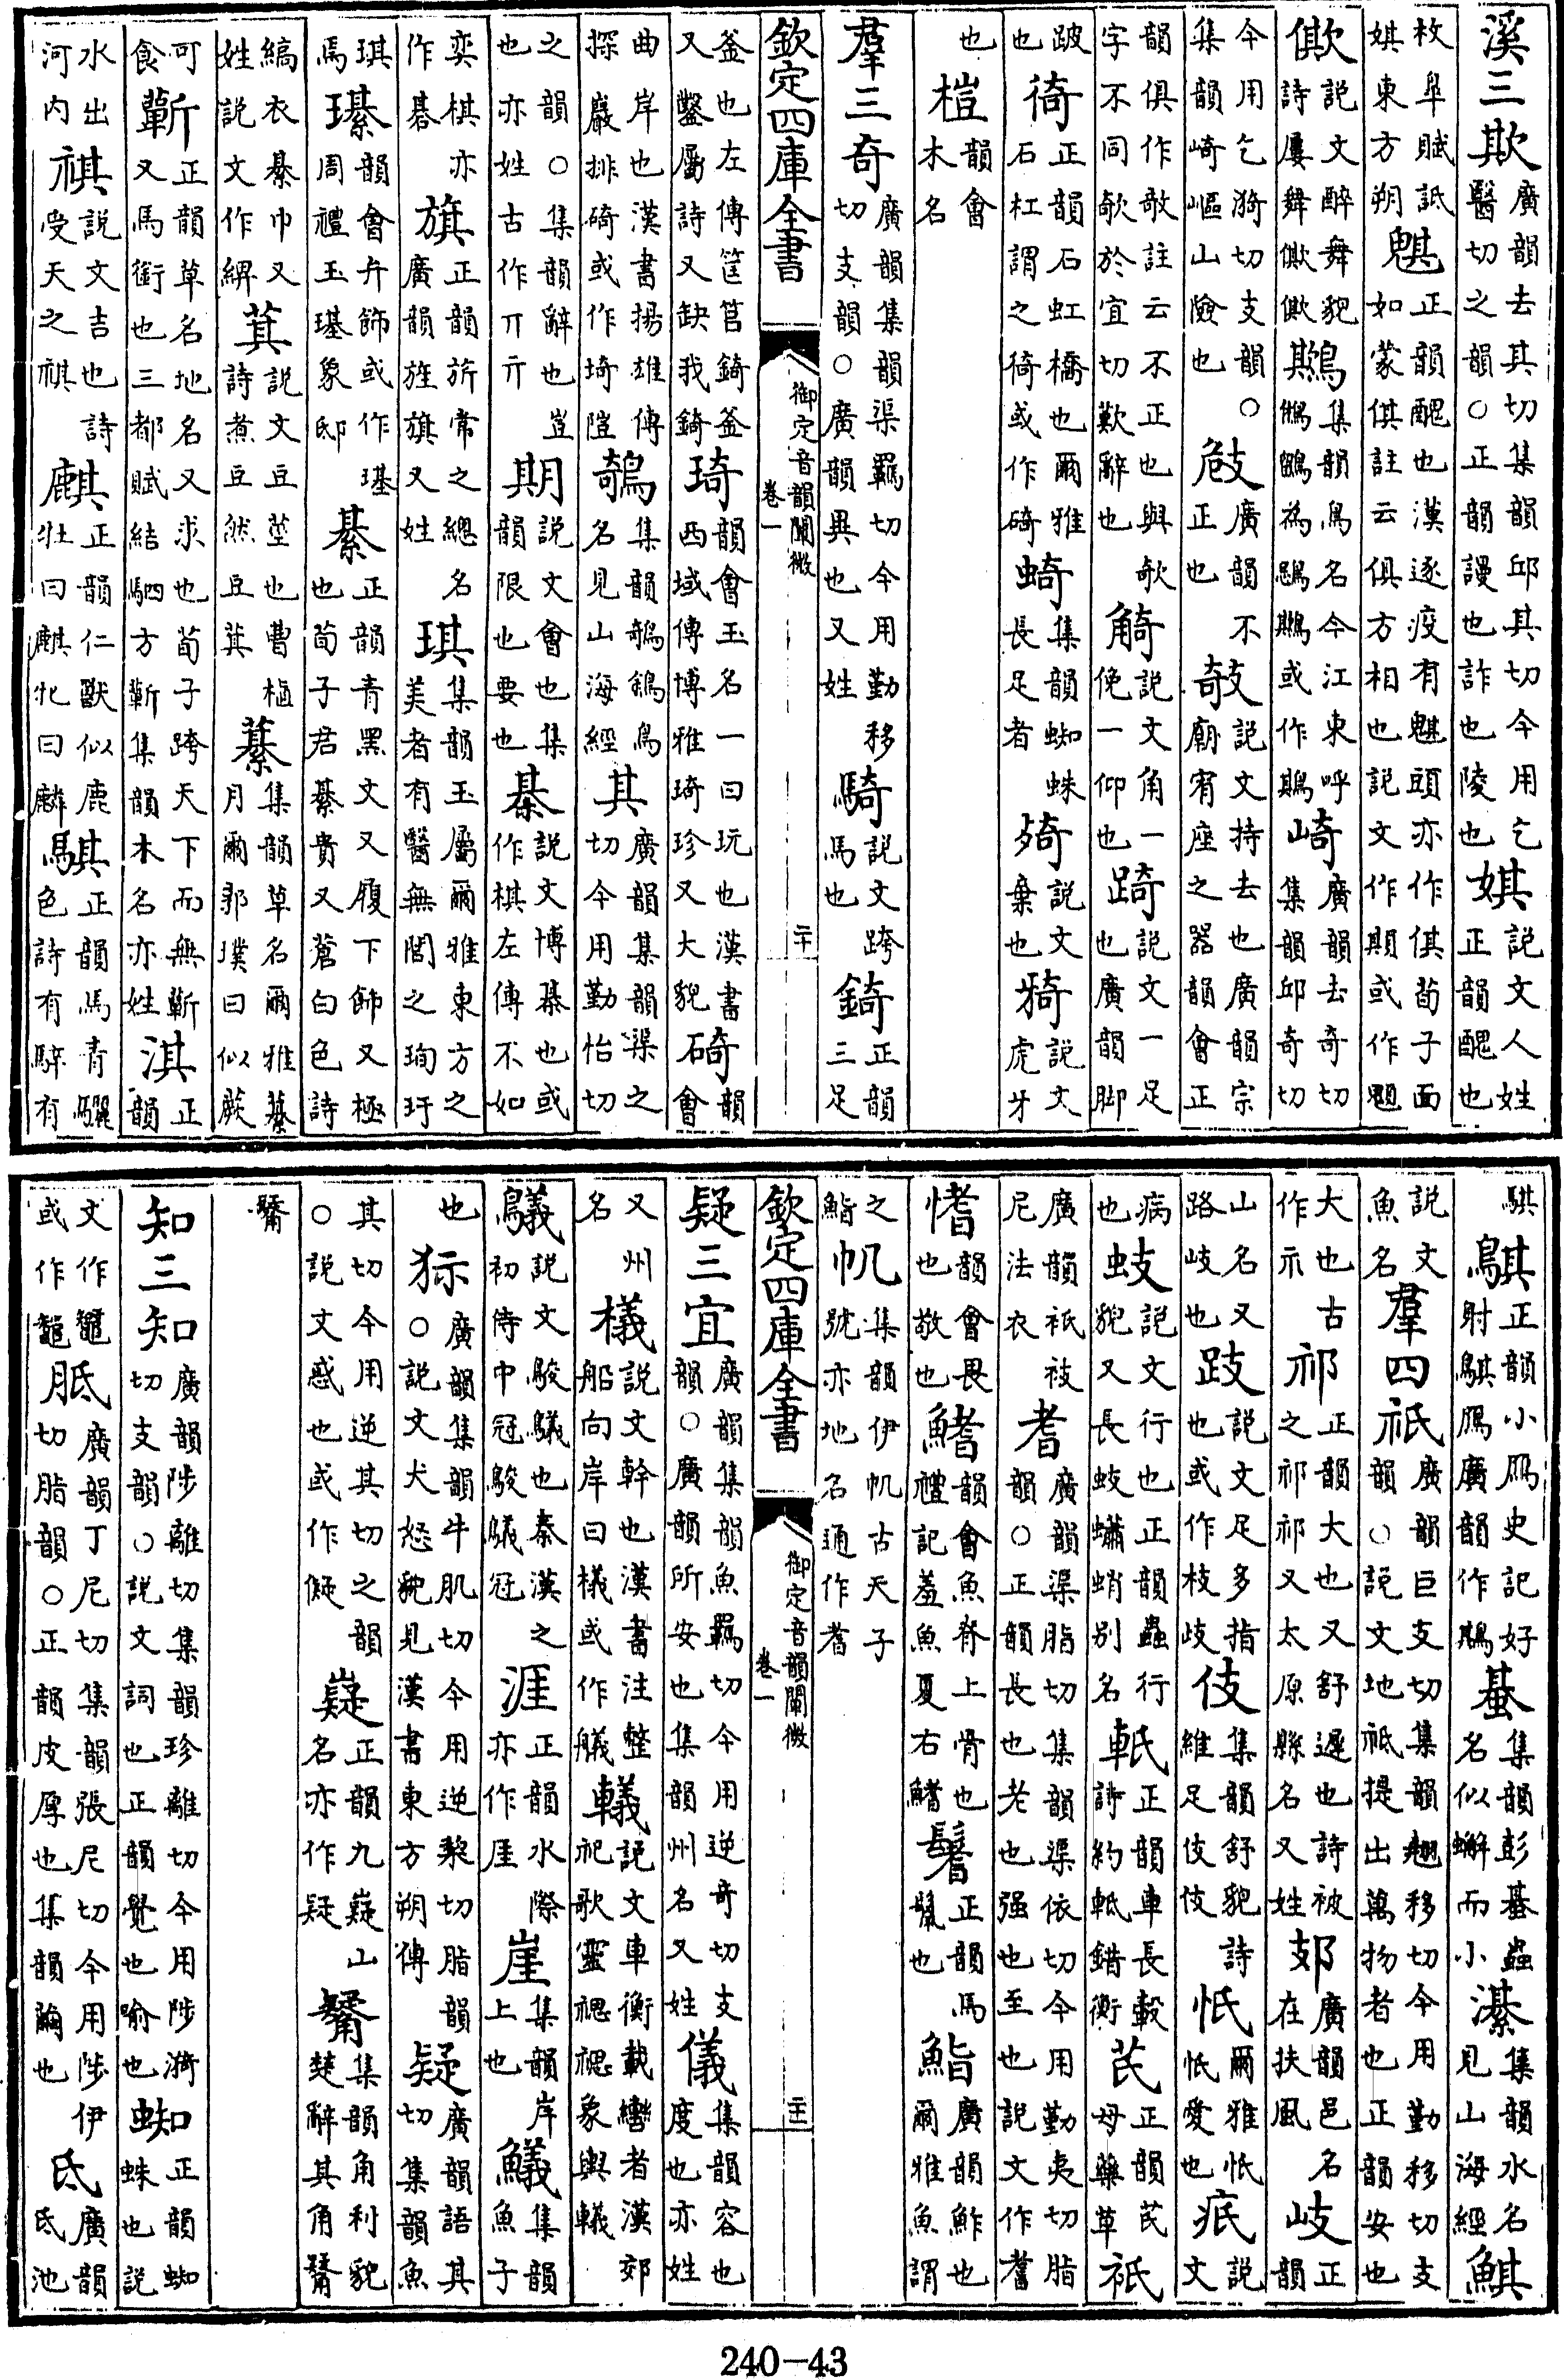 溪三欺廣韻去其切集韻邱其切今用乞醫切之韻○正韻謾也詐也陵也娸說文人姓正韻醜也
枚臯賦詆娸東方朔䫏正韻醜也漢逐疫有䫏頭亦作倛荀子面如蒙倛註云倛方相也說文作䫏或作䫥
僛說文醉舞貌詩屢舞僛僛鶀集韻鳥名今江東呼鵂鶹為鶀或作鵋崎廣韻去奇切集韻邱奇切
今用乞漪切支韻○集韻崎嶇山險也䶞廣韻不正也攲說文持去也廣韻宗廟宥座之器韻會正
韻俱作敧註云不正也與欹字不同欹於宜切歎辭也觭說文角一俛一仰也踦說文一足也廣韻腳
跛也徛正韻石虹橋也爾雅石杠謂之徛或作碕䗁集韻䵹蛛長足者䧢說文棄也㸻說文虎牙
也榿韻會木名
羣三奇廣韻集韻渠羈切今用勤移切支韻○廣韻異也又姓騎說文跨馬也錡正韻三足
欽定四庫全書 御定音韻闡微 卷一 二十
釜也左傳筐筥錡釜又鑿屬詩又缺我錡琦韻會玉名一曰玩也漢書西域傳博雅琦珍又大貌碕韻會
曲岸也漢書揚雄傳探巖排碕或作埼隑鵸集韻鵸鵌鳥名見山海經其廣韻集韻渠之切今用勤怡切
之韻○集韻辭也豈也亦姓古作丌亓期說文會也集韻限也要也棊說文博棊也或作棋左傳不如
奕棋亦作碁旗正韻旂常之總名廣韻旌旗又姓琪集韻玉屬爾雅東方之美者有醫無閭之珣玗
琪焉璂韻會弁飾或作璂周禮玉璂象邸綦正韻青黑文又履下飾又極也荀子君綦貴又蒼白色詩
縞衣綦巾又姓說文作綥萁說文豆莖也曹植詩煮豆然豆萁藄集韻草名爾雅藄月爾郭璞曰似蕨
可食蘄正韻草名地名又求也荀子跨天下而無蘄又馬銜也三都賦結駟方蘄集韻木名亦姓淇正韻
水出河內祺說文吉也詩受天之祺麒正韻仁獸似鹿牡曰麒牝曰麟騏正韻馬青驪色詩有騂有
騏鶀正韻小雁史記好射鶀雁廣韻作䳢蜝集韻彭蜝蟲名似蠏而小濝集韻水名見山海經䱈
說文魚名羣四祇廣韻巨支切集韻翹移切今用勤移切支韻○說文地祇提出萬物者也正韻安也
大也古作示祁正韻大也又舒遲也詩被之祁祁又太原縣名又姓郂廣韻邑名在扶風岐正韻
山名又路岐也跂說文足多指也或作枝歧伎集韻舒貌詩維足伎伎忯爾雅忯忯愛也疧說文
病也蚑說文行也正韻蟲行貌又長蚑蠨蛸別名軝正韻車長轂詩約軧錯衡芪正韻芪母藥草衹
廣韻衹衼尼法衣耆廣韻渠脂切集韻渠依切今用勤夷切脂韻○正韻長也老也强也至也說文作耆
愭韻會畏也敬也鰭韻會魚脊上骨也禮記羞魚夏右鰭鬐正韻馬鬣也鮨廣韻鮓也爾雅魚謂
之鮨帆集韻伊帆古天子號亦地名通作耆
欽定四庫全書 御定音韻闡微 卷一 二十一
疑三宜廣韻集韻魚羈切今用逆奇切支韻○廣韻所安也集韻州名又姓儀集韻容也度也亦姓
又州名檥說文幹也漢書注整船向岸曰檥或作艤轙說文車衡載轡者漢郊祀歌靈禗禗象輿轙
鸃說文鵔鸃也秦漢之初侍中冠鵔鸃冠涯正韻水際亦作厓崖集韻岸上也䰮集韻魚子
也狋廣韻集韻牛肌切今用逆黎切脂韻○說文犬怒貌見漢書東方朔傳疑廣韻語其切集韻魚
其切今用逆其切之韻○說文惑也或作儗嶷正韻九嶷山名亦作疑觺集韻角利貌楚辭其角觺
觺
知三知廣韻陟離切集韻珍離切今用陟漪切支韻○說文詞也正韻覺也喻也蜘正韻蜘蛛也說
文作䵹或作鼅胝廣韻丁尼切集韻張尼切今用陟伊切脂韻○正韻皮厚也集韻繭也氐廣韻氐池
240-43